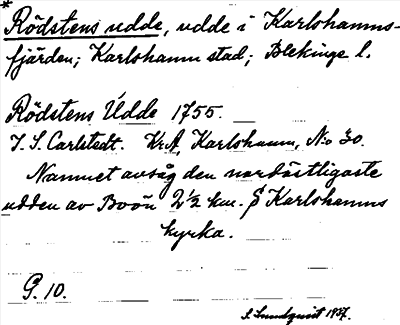 * Rödstens udde, udde i Karlshamns-
fjärden; Karlshamn stad; Blekinge l.
Rödstens Udde 1755.
J. S. Carlstedt. KrA, Karlshamn, No 30.
Namnet avsåg den nordöstligaste
udden av Boön 2½ km. S Karlshamns
kyrka.
G. 10.
S. Lundqvist 1937.